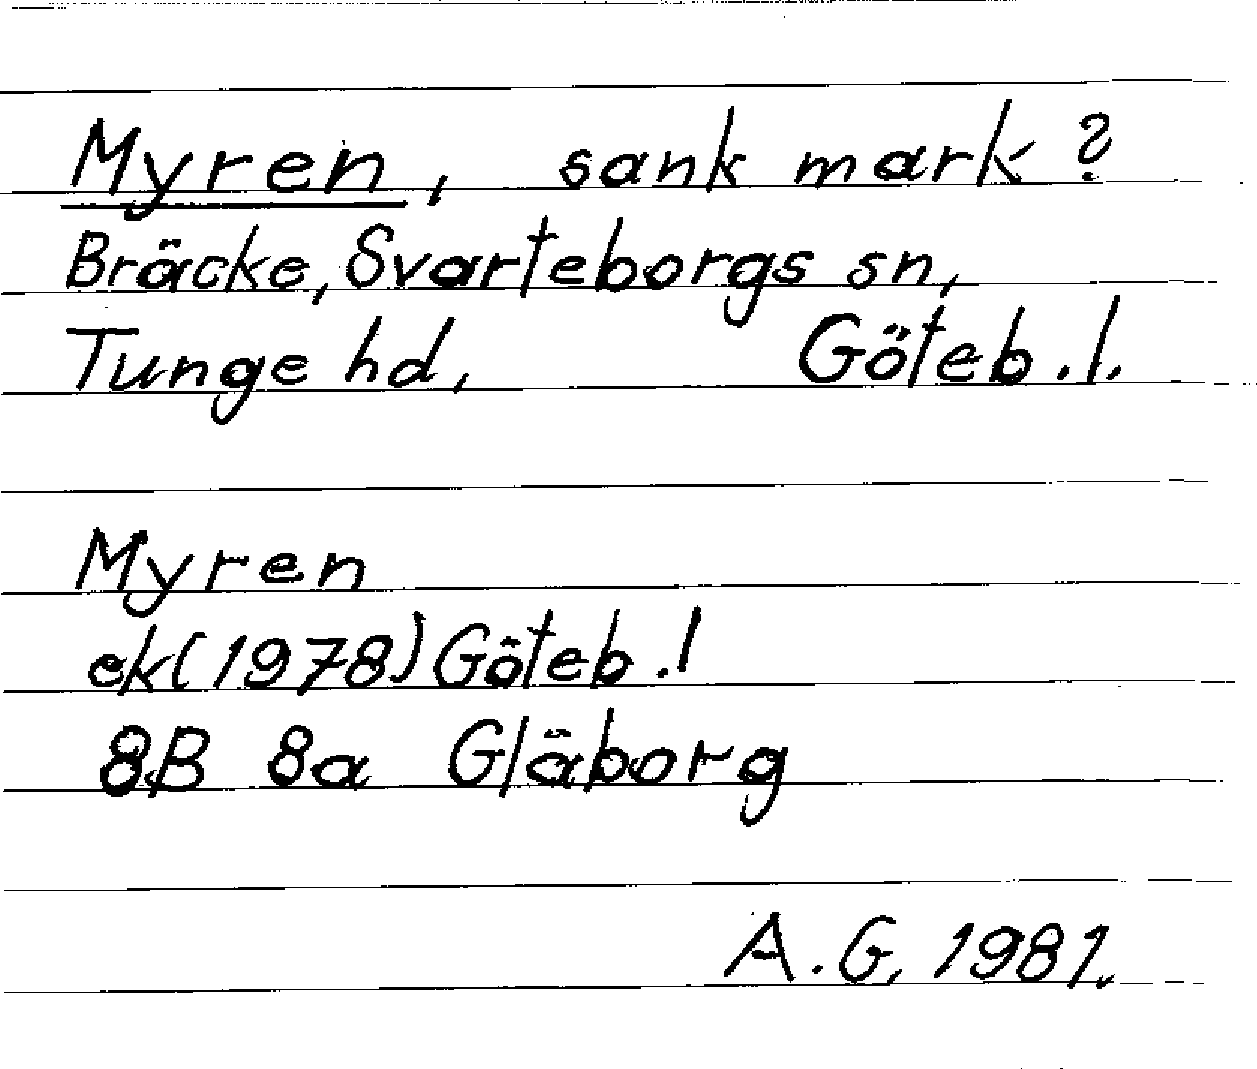 Myren, sank mark?
Bräcke, Svarteborgs sn,
Tunge hd, Göteb. l.
Myren
ek(1978) Göteb. l
8B 8a Gläborg
A. G, 1981.